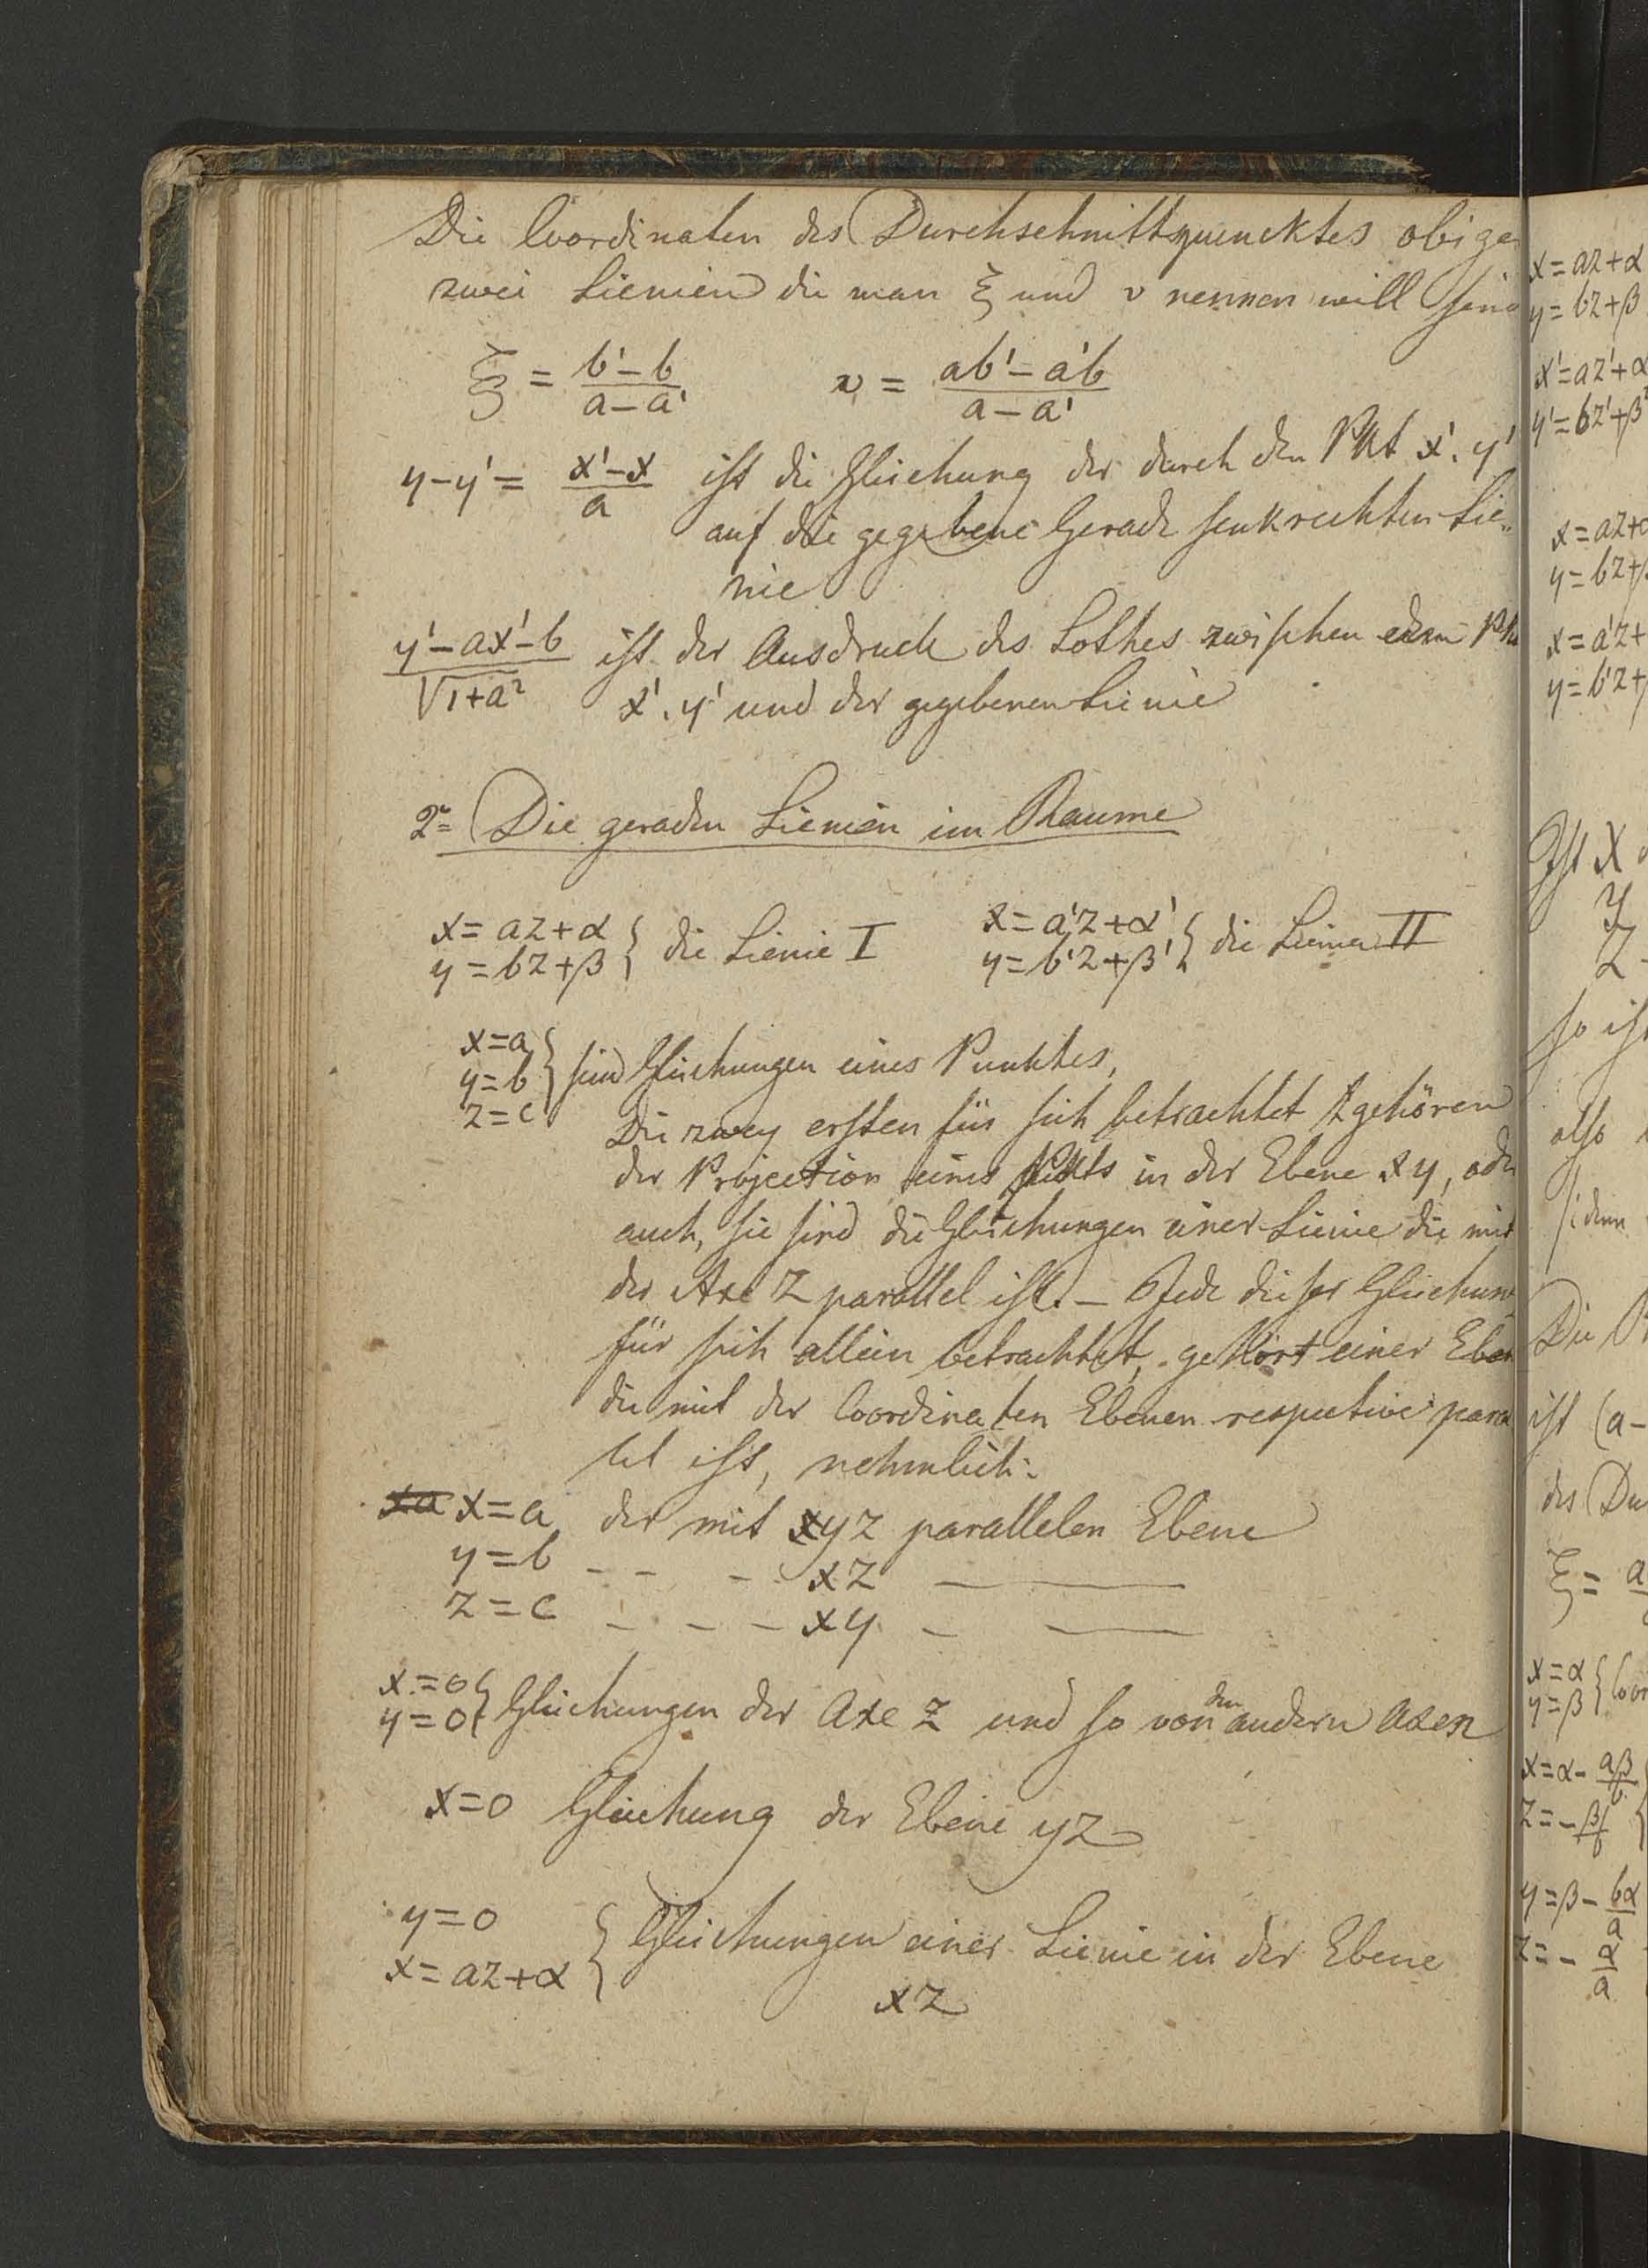 Die Coordinaten des Durchschnittspuncktes obiger
zwei Lienien die man ξ und υ nennen will sind
ξ = (b' − b)/(a − a')    υ = (ab' − a'b)/(a − a')
y − y' = (x' − x)/a ist die Gleichung der durch den Pkt x', y'
auf die gegebene Gerade senkrechten Lie„
nie
(y' − ax' − b)/√(1+a²) ist der Ausdruck des Lothes zwischen dem Pkt
x', y' und der gegebenen Lienie
2= Die geraden Lienien im Raume
x = az + α } die Lienie I    x = a'z + α' } die Lienie II
y = bz + β    y = b'z + β'
x = a
y = b } sind Gleichungen eines Punktes,
z = c
Die zwey ersten für sich betrachtet gehören
der Projection eines Pkts in der Ebene xy, oder
auch, sie sind die Gleichungen einer Lienie die mit
der Axe Z parallel ist. — Jede dieser Gleichung
für sich allein betrachtet, gehört einer Eben
die mit der Coordinaten Ebenen respective para
lel ist, nehmlich:
x = a der mit yz parallelen Ebene
y = b – – – xz — ——
z = c – – – xy – ——
x = 0
y = 0 } Gleichungen der Axe Z und so von den andern Axen
x = 0 Gleichung der Ebene yz
y = 0
x = az + α } Gleichungen einer Lienie in der Ebene
xz
x = az + α
y = bz + β
x' = az' + α
y' = bz' + β
x = az +
y = bz +
x = a'z +
y = b'z +
Ist X
Y
Z
so ist
also
denn
Die
ist (a −
des Du
ξ = a
x = α
y = β } Coor
x = α − aβ/b
z = − β/b
y = β − bα/a
z = − α/a